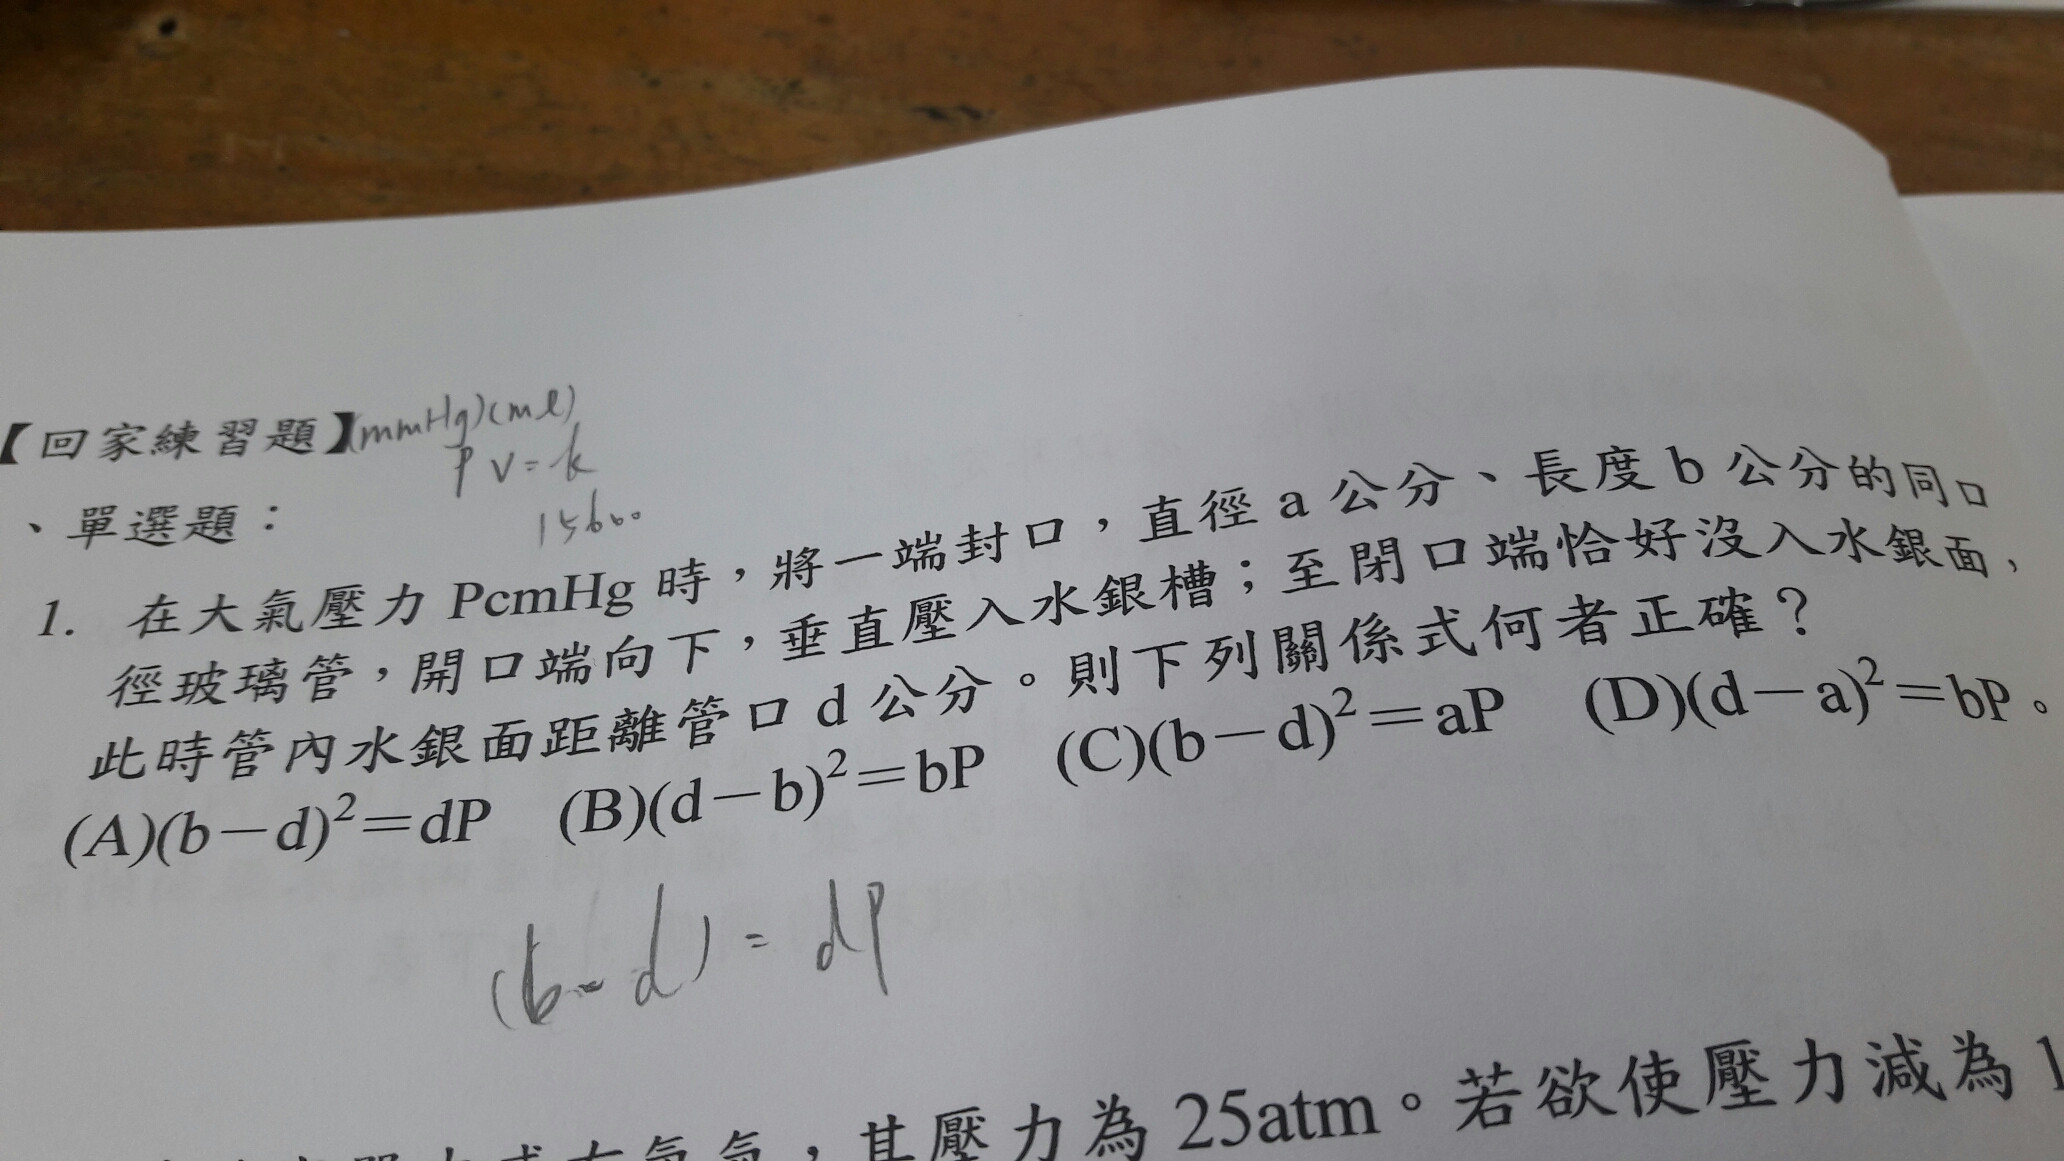 【回家練習題】(mmHg)(ml)
PV=k
、單選題：
15600
1. 在大氣壓力 PcmHg 時，將一端封口，直徑 a 公分、長度 b 公分的同口
徑玻璃管，開口端向下，垂直壓入水銀槽；至閉口端恰好沒入水銀面，
此時管內水銀面距離管口 d 公分。則下列關係式何者正確？
(A)(b－d)²＝dP (B)(d－b)²＝bP (C)(b－d)²＝aP (D)(d－a)²＝bP。
(b-d) = dP
氣，其壓力為 25atm。若欲使壓力減為 1